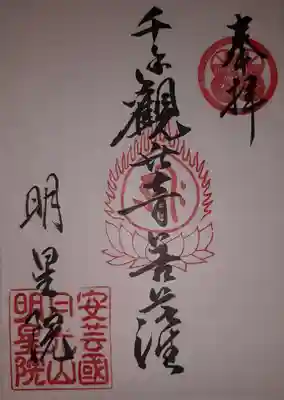 奉拝
千手觀世音菩薩
明星院
安芸國
日光山
明星院